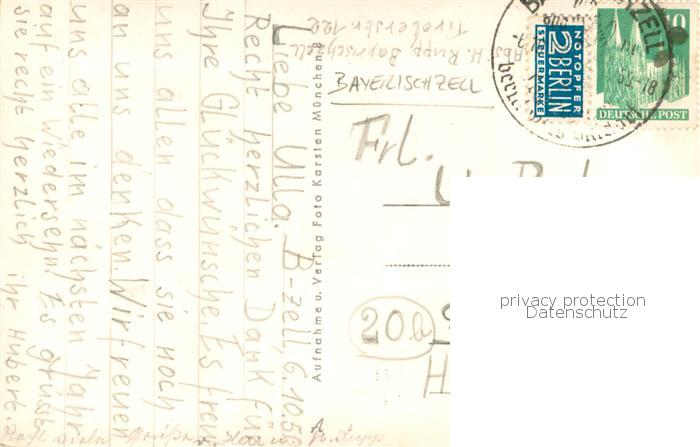 Abs. H. Rupp Bayrischzell
Tirolerstr. 122
BAYERISCHZELL
Liebe Ulla. B-zell 6.10.5
Recht herzlichen Dank für
Ihre Glückwünsche. Es freu
uns allen dass sie noch
an uns denken. Wir freuen
uns alle im nächsten Jahr
auf ein Wiedersehn. Es grüsst
sie recht herzlich ihr Hubert.
Aufnahme u. Verlag Foto Karsten München 8
NOTOPFER
2 BERLIN
STEUERMARKE
10
DEUTSCHE POST
ZELL
-18
Frl.
20b
H
privacy protection
Datenschutz